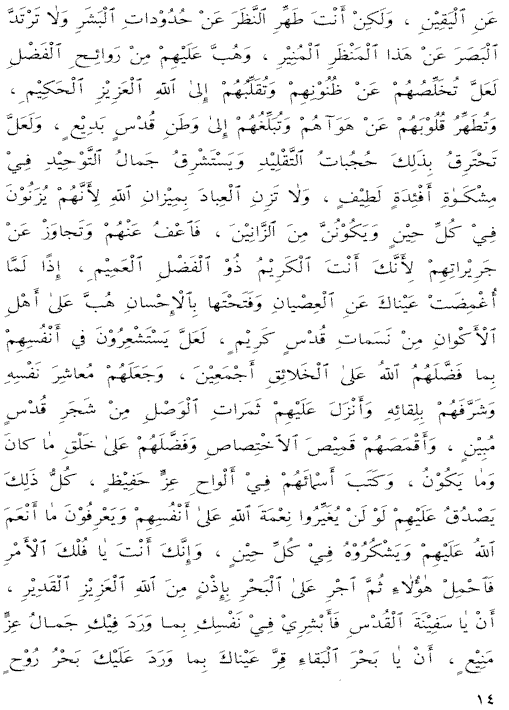 عَنِ ٱلْيَقِيْنِ ، وَلَكِنْ أَنْتَ طَهِّرِ ٱلنَّظَرَ عَنْ حُدُوْدَاتِ ٱلْبَشَرِ وَلَا تَرْتَدَّ
ٱلْبَصَرَ عَنْ هَذَا ٱلْمَنْظَرِ ٱلْمُنِيْرِ ، وَهُبَّ عَلَيْهِمْ مِنْ رَوَائِحِ ٱلْفَضْلِ
لَعَلَّ تُخَلِّصُهُمْ عَنْ ظُنُوْنِهِمْ وَتُقَلِّبُهُمْ إِلىٰ ٱللهِ ٱلْعَزِيْزِ ٱلْحَكِيْمِ ،
وَتُطَهِّرُ قُلُوْبَهُمْ عَنْ هَوَآهُمْ وَتُبَلِّغُهُمْ إِلىٰ وَطَنِ قُدْسٍ بَدِيْعٍ ، وَلَعَلَّ
تَحْتَرِقُ بِذَلِكَ حُجُبَاتُ ٱلتَّقْلِيْدِ وَيَسْتَشْرِقُ جَمَالُ ٱلتَّوْحِيْدِ فِيْ
مِشْكَـٰوةِ أَفْئِدَةٍ لَطِيْفٍ ، وَلَا تَزِنِ ٱلْعِبادَ بِمِيْزانِ ٱللهِ لِأَنَّهُمْ يُزَنُوْنَ
فِيْ كُلِّ حِيْنٍ وَيَكُوْنُنَّ مِنَ ٱلزَّانِيْنَ ، فَٱعْفُ عَنْهُمْ وَتَجاوَزْ عَنْ
جَرِيْراتِهِمْ لِأَنَّكَ أَنْتَ ٱلْكَرِيْمُ ذُوْ ٱلْفَضْلِ ٱلْعَمِيْمِ ، إِذًا لَمَّا
أُغْمِضَتْ عَيْنَاكَ عَنِ ٱلْعِصْيَانِ وَفَتَحْتَها بِٱلْإِحْسانِ هُبَّ عَلىٰ أَهْلِ
ٱلْأَكْوانِ مِنْ نَسَمَاتِ قُدْسٍ كَرِيْمٍ ، لَعَلَّ يَسْتَشْعِرُوْنَ في أَنْفُسِهِمْ
بِما فَضَّلَهُمُ ٱللهُ عَلىٰ ٱلْخَلائِقِ أَجْمَعِيْنَ ، وَجَعَلَهُمْ مُعاشِرَ نَفْسِهِ
وَشَرَّفَهُمْ بِلِقائِهِ وَأَنْزَلَ عَلَيْهِمْ ثَمَراتِ ٱلْوَصْلِ مِنْ شَجَرِ قُدْسٍ
مُبِيْنٍ ، وَأَقْمَصَهُمْ قَمِيْصَ ٱلاَخْتِصاصِ وَفَضَّلَهُمْ عَلىٰ خَلْقِ مٰا كانَ
وَمٰا يَكُوْنُ ، وَكَتَبَ أَسْمائَهُمْ فِيْ أَلْواحِ عِزٍّ حَفِيْظٍ ، كُلُّ ذَلِكَ
يَصْدُقُ عَلَيْهِمْ لَوْ لَنْ يُغَيِّرُوا نِعْمَةَ ٱللهِ عَلىٰ أَنْفُسِهِمْ وَيَعْرِفُوْنَ مٰا أَنْعَمَ
ٱللهُ عَلَيْهِمْ وَيَشْكُرُوْهُ فِيْ كُلِّ حِيْنٍ ، وَإِنَّكَ أَنْتَ يٰا فُلْكَ ٱلْأَمْرِ
فَٱحْمِلْ هٰؤُلاءِ ثُمَّ ٱجْرِ عَلىٰ ٱلْبَحْرِ بِإِذْنٍ مِنَ ٱللهِ ٱلْعَزِيْزِ ٱلْقَدِيْرِ ،
أَنْ يٰا سَفِيْنَةَ ٱلْقُدْسِ فَأَبْشِرِيْ فِيْ نَفْسِكِ بِمـا وَرَدَ فِيْكِ جَمـالُ عِزٍّ
مَنِيْعٍ ، أَنْ يٰا بَحْرَ ٱلْبَقاءِ قِرَّ عَيْناكَ بِما وَرَدَ عَلَيْكَ بَحْرُ رُوْحٍ
١٤